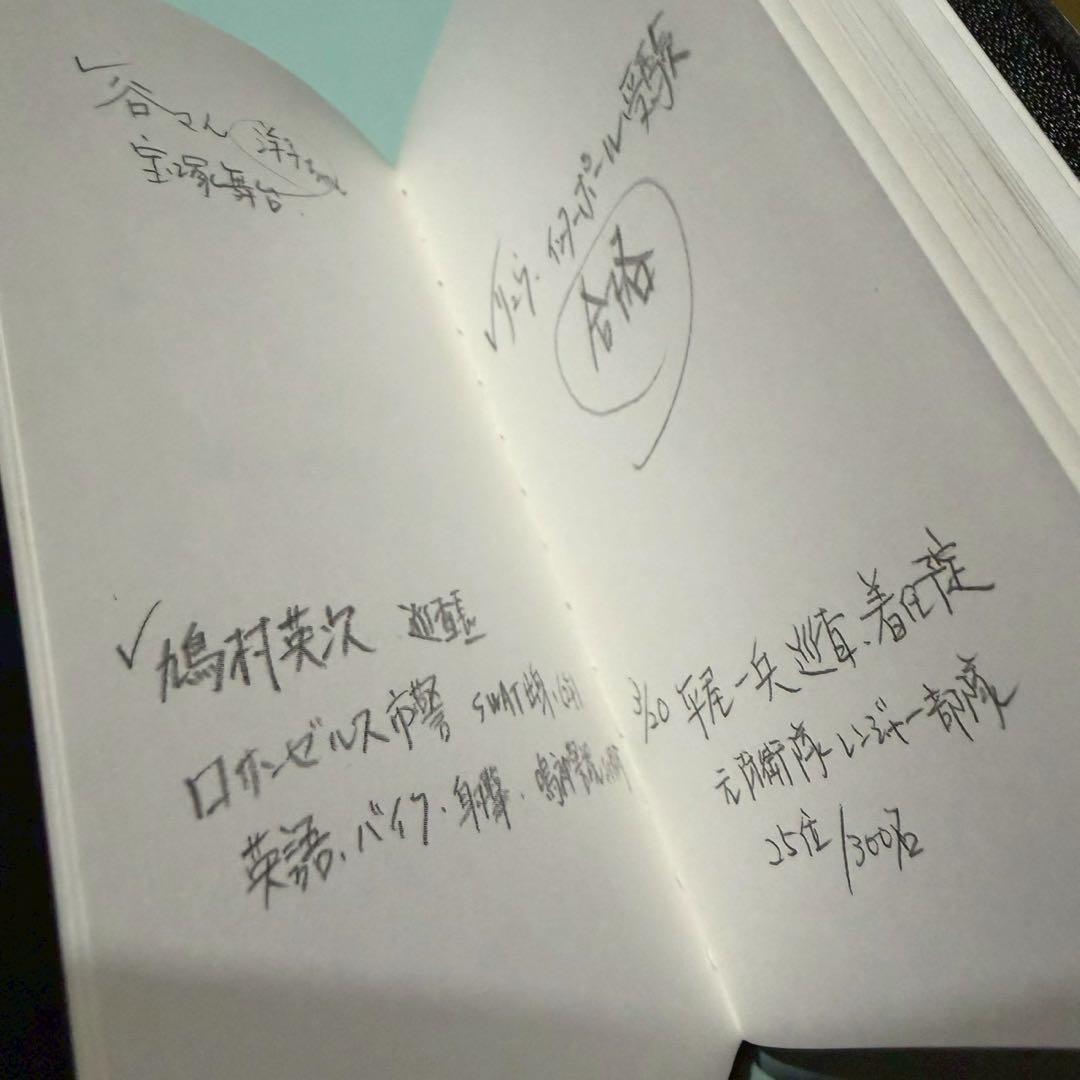 谷さん 洋子ちゃん
宝塚舞台
リュウ、インターポール受験
合格
鳩村英次 巡査長
ロサンゼルス市警 SWAT
英語、バイク、射撃、
3/20 平尾一兵 巡査、着任予定
元自衛隊レンジャー部隊
25位/300名